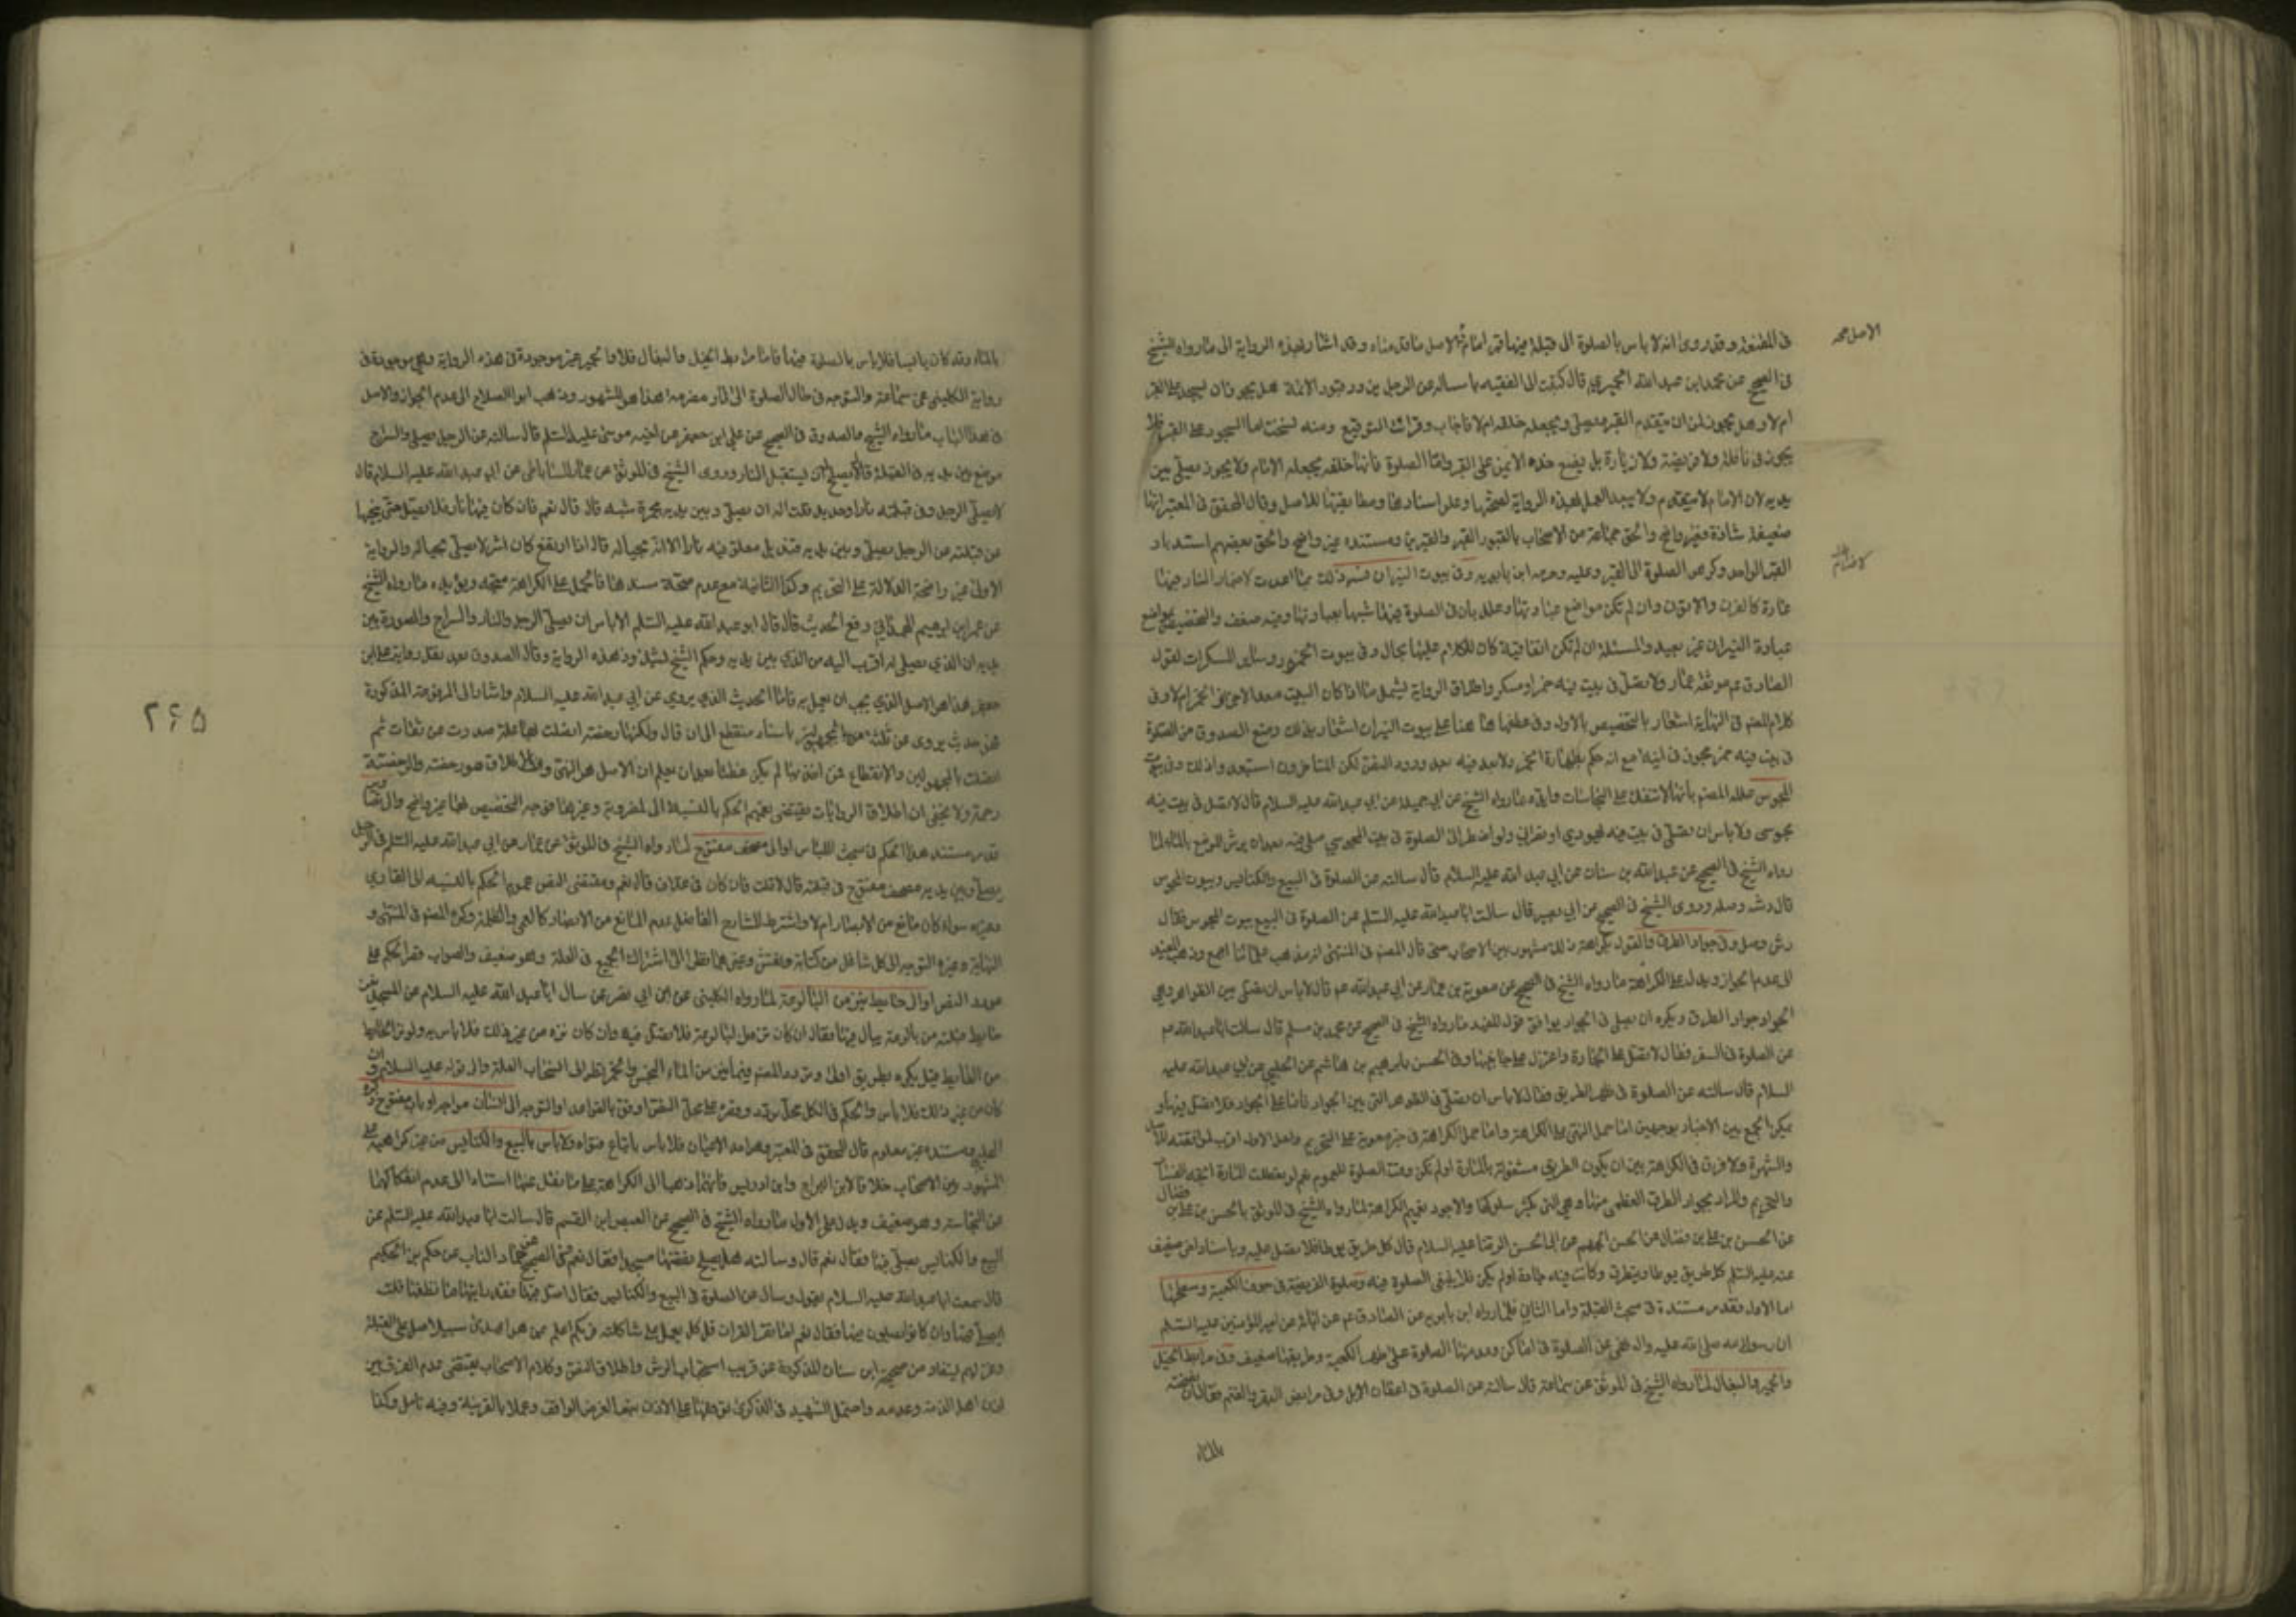 في المقنعة وقد روى انه لا باس بالصلوة الى قبلة فيها قبر امام الاصل ما قدمناه وقد اشار بهذه الرواية الى ما رواه الشيخ
الاصل محمد
في الصحيح عن محمد ابن عبد الله الحميري قال كتبت الى الفقيه ع اساله عن الرجل يزور قبور الائمة هل يجوز ان يسجد على القبر
ام لا وهل يجوز لمن ان يتقدم القبر ويصلي ويجعله خلفه ام لا فاجاب وقرات التوقيع ومنه نسخت اما السجود على القبر فلا
يجوز في نافلة ولا فريضة ولا زيارة بل يضع خده الايمن على القبر واما الصلوة فانها خلفه يجعله الامام ولا يجوز ان يصلي بين
يديه لان الامام لا يتقدم ولا يبعد العمل بهذه الرواية لصحتها وعلو اسنادها ومطابقتها للاصل وقال المحقق في المعتبر انها
ضعيفة شاذة وغير واضح والحق جماعة من الاصحاب بالقبور القبر والقبرين ومستنده غير واضح والحق بعضهم استدبار
القبر الواحد وكره الصلوة الى القبر وعليه وحرمه ابن بابويه وفي بيوت النيران فسر ذلك بما اعدت لاضرام النار فيها
عادة كالفرن والاتون وان لم تكن مواضع عبادتها وعلل بان في الصلوة فيها تشبها بعبادتها وفيه ضعف والتخصيص بمواضع
عبادة النيران غير بعيد والمسئلة ان لم تكن اتفاقية كان للكلام عليها مجال وفي بيوت الخمور وساير المسكرات لقول
الصادق ع في موثقة عمار ولا تصل في بيت فيه خمر او مسكر واطلاق الرواية يشمل ما اذا كان البيت معدا لاحراز الخمر ام لا وفي
كلام المصنف في النهاية اشعار بالتخصيص بالاول وفي عطفها هنا على بيوت النيران اشعار بذلك ومنع الصدوق من الصلوة
في بيت فيه خمر محرز في انية مع انه حكم بطهارة الخمر ولا بعد فيه بعد ورود النص لكن المتاخرون استبعدوا ذلك وفي بيوت
المجوس علله المصنف بانها لا تنفك عن النجاسات وايده بما رواه الشيخ عن ابي جميلة عن ابي عبد الله عليه السلام قال لا تصل في بيت فيه
مجوسي ولا باس ان تصلي في بيت فيه يهودي او نصراني ولو اضطر الى الصلوة في بيت المجوسي صلى فيه بعد ان يرش الموضع بالماء لما
رواه الشيخ في الصحيح عن عبد الله بن سنان عن ابي عبد الله عليه السلام قال سالته عن الصلوة في البيع والكنايس وبيوت المجوس
قال رش وصل وروى الشيخ في الصحيح عن ابي بصير قال سالت ابا عبد الله عليه السلم عن الصلوة في البيع بيوت المجوس فقال
رش وصل وفي جواد الطرق والقول بكراهة ذلك مشهور بين الاصحاب حتى قال المصنف في المنتهى انه مذهب علمائنا اجمع وذهب المفيد
الى عدم الجواز ويدل على الكراهة ما رواه الشيخ في الصحيح عن معوية بن عمار عن ابي عبد الله عم قال لا باس ان تصلي بين الظواهر وهي
الجواد جواد الطرق ويكره ان يصلى في الجواد يوافق قول المفيد ما رواه الشيخ في الصحيح عن محمد بن مسلم قال سالت ابا عبد الله عم
عن الصلوة في السفر فقال لا تصل على الجادة واعتزل على جانبيها وفي الحسن بابرهيم بن هاشم عن الحلبي عن ابي عبد الله عليه
السلام قال سالته عن الصلوة في ظهر الطريق فقال لا باس ان تصلي في الظواهر التي بين الجواد فاما على الجواد فلا تصل فيها و
يمكن الجمع بين الاخبار بوجهين اما حمل النهي على الكراهة واما حمل الكراهة في خبر معوية على التحريم ولعل الاول اقرب لموافقته للاصل
والشهرة ولا فرق في الكراهة بين ان يكون الطريق مشغولة بالمارة او لم تكن وقت الصلوة للعموم نعم لو تعطلت المارة اتجه الفساد
والتحريم والمراد بجواد الطرق العظمى منها وهي التي يكثر سلوكها والاجود تعميم الكراهة لما رواه الشيخ في الموثق بالحسن بن علي بن فضال
عن الحسن بن علي بن فضال عن الحسن الجهم عن ابي الحسن الرضا عليه السلام قال كل طريق يوطا فلا تصل عليه وباسناد اخر ضعيف
عنه عليه السلم كل طريق يوطا ويتطرق وكانت فيه جادة او لم يكن فلا ينبغي الصلوة فيه وصلوة الفريضة في جوف الكعبة وسطحها
اما الاول فقد مر مستنده في مبحث القبلة واما الثاني فلما رواه ابن بابويه عن الصادق عم عن ابائه عن امير المؤمنين عليه السلم
ان رسول الله صلى الله عليه واله نهى عن الصلوة في اماكن وعد منها الصلوة على ظهر الكعبة وطريقها ضعيف وفي مرابط الخيل
والحمير والبغال لما رواه الشيخ في الموثق عن سماعة قال سالته عن الصلوة في اعطان الابل وفي مرابض البقر والغنم فقال ان نضحته
بالماء
بالماء وقد كان يابسا فلا باس بالصلوة فيها فاما مرابط الخيل والبغال فلا والحمير غير موجودة في هذه الرواية وهي موجودة في
رواية الكليني عن سماعة والتوجه في حال الصلوة الى نار مضرمة هذا هو المشهور وذهب ابو الصلاح الى عدم الجواز والاصل
في هذا الباب ما رواه الشيخ والصدوق في الصحيح عن علي ابن جعفر عن اخيه موسى عليه السلم قال سالته عن الرجل يصلي والسراج
موضع بين يديه في القبلة قال لا يصلح له ان يستقبل النار وروى الشيخ في الموثق عن عمار الساباطي عن ابي عبد الله عليه السلام قال
لا يصلي الرجل وفي قبلته نار او حديد قلت اله ان يصلي وبين يديه مجمرة شبه قال قال نعم فان كان فيها نار فلا يصل حتى ينحيها
عن قبلته عن الرجل يصلي وبين يديه قنديل معلق فيه نار الا انه بحياله قال اذا ارتفع كان اشر لا يصلي بحياله والرواية
الاولى غير واضحة الدلالة على التحريم وكذا الثانية مع عدم صحة سندها فالحمل على الكراهة متجه ويؤيده ما رواه الشيخ
عن عمر ابن ابرهيم الهمداني رفع الحديث قال قال ابو عبد الله عليه السلم لا باس ان يصلي الرجل والنار والسراج والصورة بين
يديه ان الذي يصلي له اقرب اليه من الذي بين يديه وحكم الشيخ بشذوذ هذه الرواية وقال الصدوق بعد نقل رواية علي ابن
جعفر هذا هو الاصل الذي يجب ان يعمل به فاما الحديث الذي يروي عن ابي عبد الله عليه السلام واشار الى المرفوعة المذكورة
فهو حديث يروى عن ثلثة من المجهولين باسناد منقطع الى ان قال ولكنها رخصة اقترنت بها علة صدرت عن ثقات ثم
اتصلت بالمجهولين والانقطاع فمن اخذ بها لم يكن مخطئا بعد ان يعلم ان الاصل هو النهي وان الاطلاق هو رخصة والرخصة
رحمة ولا يخفى ان اطلاق الروايات يقتضي تعميم الحكم بالنسبة الى المضرمة وغيرها فوجه التخصيص هنا غير واضح والى تصاوير
قد مر مستند هذا الحكم في مبحث اللباس او الى مصحف مفتوح لما رواه الشيخ في الموثق عن عمار عن ابي عبد الله عليه السلم في الرجل
يصلي وبين يديه مصحف مفتوح في قبلته قال لا قلت فان كان في غلاف قال نعم ومقتضى النص عموم الحكم بالنسبة الى القاري
وغيره سواء كان مانع من الابصار ام لا واشترط الشارح الفاضل عدم المانع من الابصار كالعمى والظلمة وكره المصنف في المنتهى و
النهاية وغيره التوجه الى كل شاغل من كتابة ونقش وغيرهما نظرا الى اشتراك الجميع في العلة وهو ضعيف والصواب قصر الحكم على
مورد النص او الى حائط ينز من البالوعة لما رواه الكليني عن ابن ابي نصر عن سال ابا عبد الله عليه السلام عن المسجد ينز
حايط قبلته من بالوعة يبال فيها فقال ان كان نزه من البالوعة فلا تصل فيه وان كان نزه من غير ذلك فلا باس به ولو نز الحايط
من الغايط قيل يكره بطريق اولى وتردد المصنف فيما ينز من الماء النجس والخمر نظرا الى اشتراك العلة والى قوله عليه السلام وان
كان من غير ذلك فلا باس والحكم في الكل محل تردد وقصره على محل النص اوفق بالقواعد او التوجه الى انسان مواجه او باب مفتوح ذكره
الحلبي ومستنده غير معلوم قال المحقق في المعتبر وهو احد الاعيان فلا باس باتباع فتواه ولا باس بالبيع والكنايس من غير كراهية على
المشهور بين الاصحاب خلافا لابن البراج وابن ادريس فانهما ذهبا الى الكراهة على ما نقل عنهما استنادا الى عدم انفكاكها
عن النجاسة وهو ضعيف ويدل على الاول ما رواه الشيخ في الصحيح عن العيص ابن القسم قال سالت ابا عبد الله عليه السلم عن
البيع والكنايس يصلى فيها فقال نعم قال وسالته هل يصلح نقضها مسجدا فقال نعم وفي الصحيح عن حماد الناب عن حكم بن الحكيم
قال سمعت ابا عبد الله عليه السلام يقول وسال عن الصلوة في البيع والكنايس فقال صل فيها فقد رايتها ما انظفها قلت
ايصلي فيها وان كانوا يصلون فيها فقال نعم اما تقرا القران قل كل يعمل على شاكلته فربكم اعلم بمن هو اهدى سبيلا صل على القبلة
وغربهم ليستفاد من صحيحة ابن سنان المذكورة عن قريب استحباب الرش واطلاق النص وكلام الاصحاب يقتضي عدم الفرق بين
اذن اهل الذمة وعدمه واحتمل الشهيد في الذكرى توقفها على الاذن تبعا لغرض الواقف وعملا بالقرينة وفيه تامل وكذا
٢٦٥